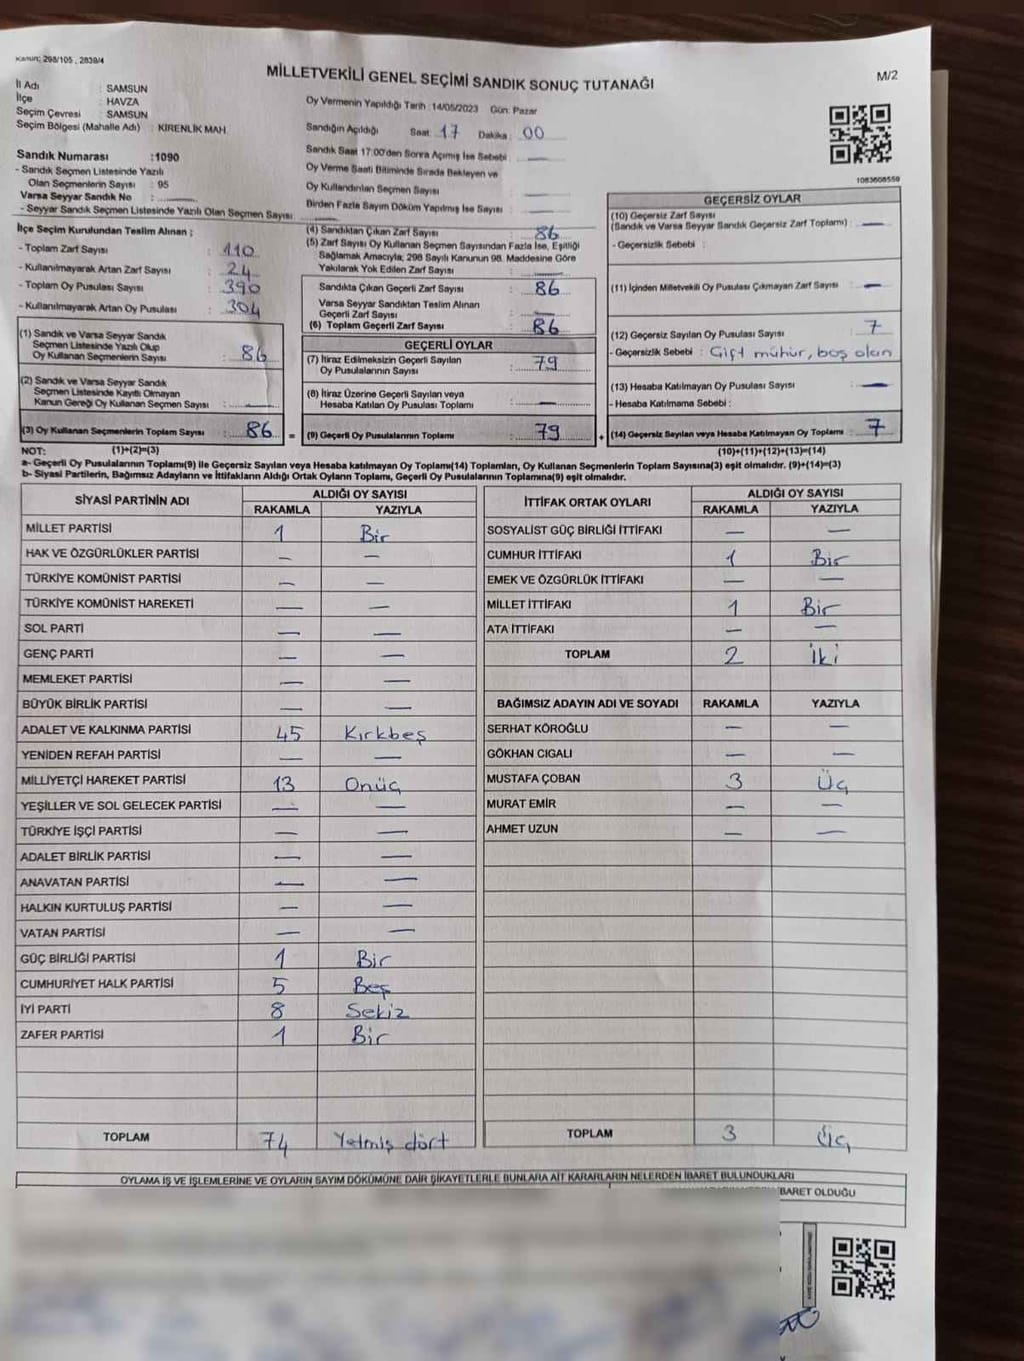 Kanun: 298/105 , 2839/4
MİLLETVEKİLİ GENEL SEÇİMİ SANDIK SONUÇ TUTANAĞI
M/2
İl Adı : SAMSUN
İlçe : HAVZA
Seçim Çevresi : SAMSUN
Seçim Bölgesi (Mahalle Adı) : KİRENLİK MAH.
Sandık Numarası :1090
- Sandık Seçmen Listesinde Yazılı
Olan Seçmenlerin Sayısı : 95
Varsa Seyyar Sandık No :
- Seyyar Sandık Seçmen Listesinde Yazılı Olan Seçmen Sayısı :
Oy Vermenin Yapıldığı Tarih :14/05/2023 Gün: Pazar
Sandığın Açıldığı Saat: 17 Dakika : 00
Sandık Saat 17:00'den Sonra Açmış İse Sebebi : —
Oy Verme Saati Bitiminde Sırada Bekleyen ve
Oy Kullandırılan Seçmen Sayısı : —
Birden Fazla Sayım Döküm Yapılmış İse Sayısı : —
1083608559
İlçe Seçim Kurulundan Teslim Alınan ;
- Toplam Zarf Sayısı : 110
- Kullanılmayarak Artan Zarf Sayısı : 24
- Toplam Oy Pusulası Sayısı : 390
- Kullanılmayarak Artan Oy Pusulası : 304
(1) Sandık ve Varsa Seyyar Sandık
Seçmen Listesinde Yazılı Olup
Oy Kullanan Seçmenlerin Sayısı : 86
(2) Sandık ve Varsa Seyyar Sandık
Seçmen Listesinde Kayıtlı Olmayan
Kanun Gereği Oy Kullanan Seçmen Sayısı : —
(3) Oy Kullanan Seçmenlerin Toplam Sayısı : 86 =
(4) Sandıktan Çıkan Zarf Sayısı : 86
(5) Zarf Sayısı Oy Kullanan Seçmen Sayısından Fazla İse, Eşitliği
Sağlamak Amacıyla; 298 Sayılı Kanunun 98. Maddesine Göre
Yakılarak Yok Edilen Zarf Sayısı : —
Sandıkta Çıkan Geçerli Zarf Sayısı : 86
Varsa Seyyar Sandıktan Teslim Alınan
Geçerli Zarf Sayısı : —
(6) Toplam Geçerli Zarf Sayısı : 86
GEÇERLİ OYLAR
(7) İtiraz Edilmeksizin Geçerli Sayılan
Oy Pusulalarının Sayısı : 79
(8) İtiraz Üzerine Geçerli Sayılan veya
Hesaba Katılan Oy Pusulası Toplamı : —
(9) Geçerli Oy Pusulalarının Toplamı : 79 +
GEÇERSİZ OYLAR
(10) Geçersiz Zarf Sayısı
(Sandık ve Varsa Seyyar Sandık Geçersiz Zarf Toplamı) : —
- Geçersizlik Sebebi :
(11) İçinden Milletvekili Oy Pusulası Çıkmayan Zarf Sayısı : —
(12) Geçersiz Sayılan Oy Pusulası Sayısı : 7
- Geçersizlik Sebebi : Çift mühür, boş olan
(13) Hesaba Katılmayan Oy Pusulası Sayısı : —
- Hesaba Katılmama Sebebi :
(14) Geçersiz Sayılan veya Hesaba Katılmayan Oy Toplamı : 7
NOT: (1)+(2)=(3) (10)+(11)+(12)+(13)=(14)
a- Geçerli Oy Pusulalarının Toplamı(9) ile Geçersiz Sayılan veya Hesaba katılmayan Oy Toplamı(14) Toplamları, Oy Kullanan Seçmenlerin Toplam Sayısına(3) eşit olmalıdır. (9)+(14)=(3)
b- Siyasi Partilerin, Bağımsız Adayların ve İttifakların Aldığı Ortak Oyların Toplamı, Geçerli Oy Pusulalarının Toplamına(9) eşit olmalıdır.
SİYASİ PARTİNİN ADI ALDIĞI OY SAYISI
RAKAMLA YAZIYLA
MİLLET PARTİSİ 1 Bir
HAK VE ÖZGÜRLÜKLER PARTİSİ — —
TÜRKİYE KOMÜNİST PARTİSİ — —
TÜRKİYE KOMÜNİST HAREKETİ — —
SOL PARTİ — —
GENÇ PARTİ — —
MEMLEKET PARTİSİ — —
BÜYÜK BİRLİK PARTİSİ — —
ADALET VE KALKINMA PARTİSİ 45 Kırkbeş
YENİDEN REFAH PARTİSİ — —
MİLLİYETÇİ HAREKET PARTİSİ 13 Onüç
YEŞİLLER VE SOL GELECEK PARTİSİ — —
TÜRKİYE İŞÇİ PARTİSİ — —
ADALET BİRLİK PARTİSİ — —
ANAVATAN PARTİSİ — —
HALKIN KURTULUŞ PARTİSİ — —
VATAN PARTİSİ — —
GÜÇ BİRLİĞİ PARTİSİ 1 Bir
CUMHURİYET HALK PARTİSİ 5 Beş
İYİ PARTİ 8 Sekiz
ZAFER PARTİSİ 1 Bir
TOPLAM 74 Yetmiş dört
İTTİFAK ORTAK OYLARI ALDIĞI OY SAYISI
RAKAMLA YAZIYLA
SOSYALİST GÜÇ BİRLİĞİ İTTİFAKI — —
CUMHUR İTTİFAKI 1 Bir
EMEK VE ÖZGÜRLÜK İTTİFAKI — —
MİLLET İTTİFAKI 1 Bir
ATA İTTİFAKI — —
TOPLAM 2 İki
BAĞIMSIZ ADAYIN ADI VE SOYADI RAKAMLA YAZIYLA
SERHAT KÖROĞLU — —
GÖKHAN CIGALI — —
MUSTAFA ÇOBAN 3 Üç
MURAT EMİR — —
AHMET UZUN — —
TOPLAM 3 Üç
OYLAMA İŞ VE İŞLEMLERİNE VE OYLARIN SAYIM DÖKÜMÜNE DAİR ŞİKAYETLERLE BUNLARA AİT KARARLARIN NELERDEN İBARET BULUNDUKLARI
İBARET OLDUĞU